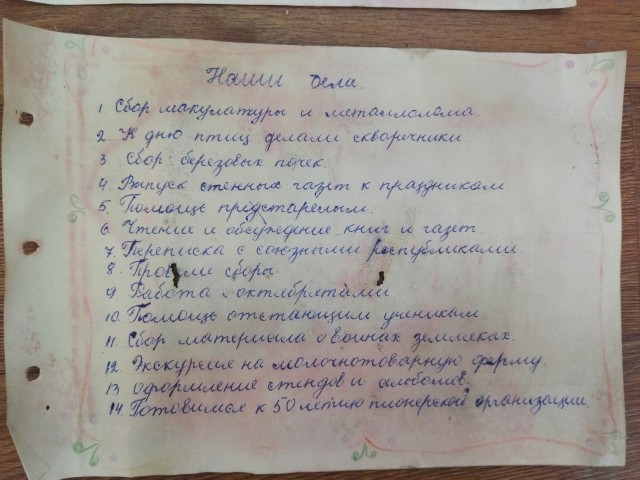 Наши дела.
1. Сбор макулатуры и металлолома.
2. К дню птиц делали скворечники
3. Сбор березовых почек
4. Выпуск стенных газет к праздникам
5. Помощь престарелым.
6. Чтение и обсуждение книг и газет.
7. Переписка с союзными республиками.
8. Провели сборы
9. Работа с октябрятами
10. Помощь отстающим ученикам.
11. Сбор материала о воинах земляках.
12. Экскурсия на молочнотоварную ферму.
13. Оформление стендов и альбомов.
14. Готовимся к 50 летию пионерской организации.